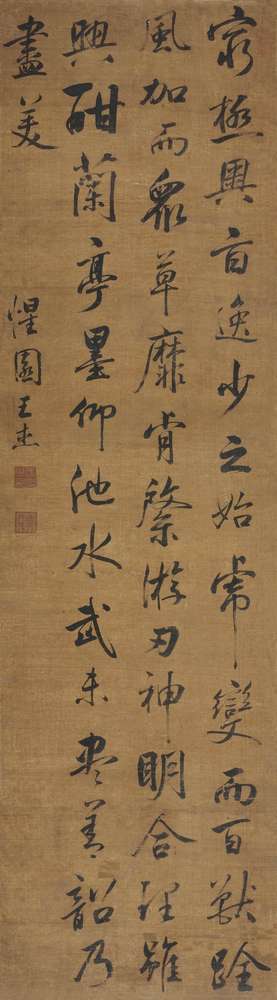 窮極奧旨逸少之始虎變而百獸跧
風加而眾草靡肯綮游刃神明合理雖
興酣蘭亭墨仰池水武未盡善韶乃
盡美
惺園王杰